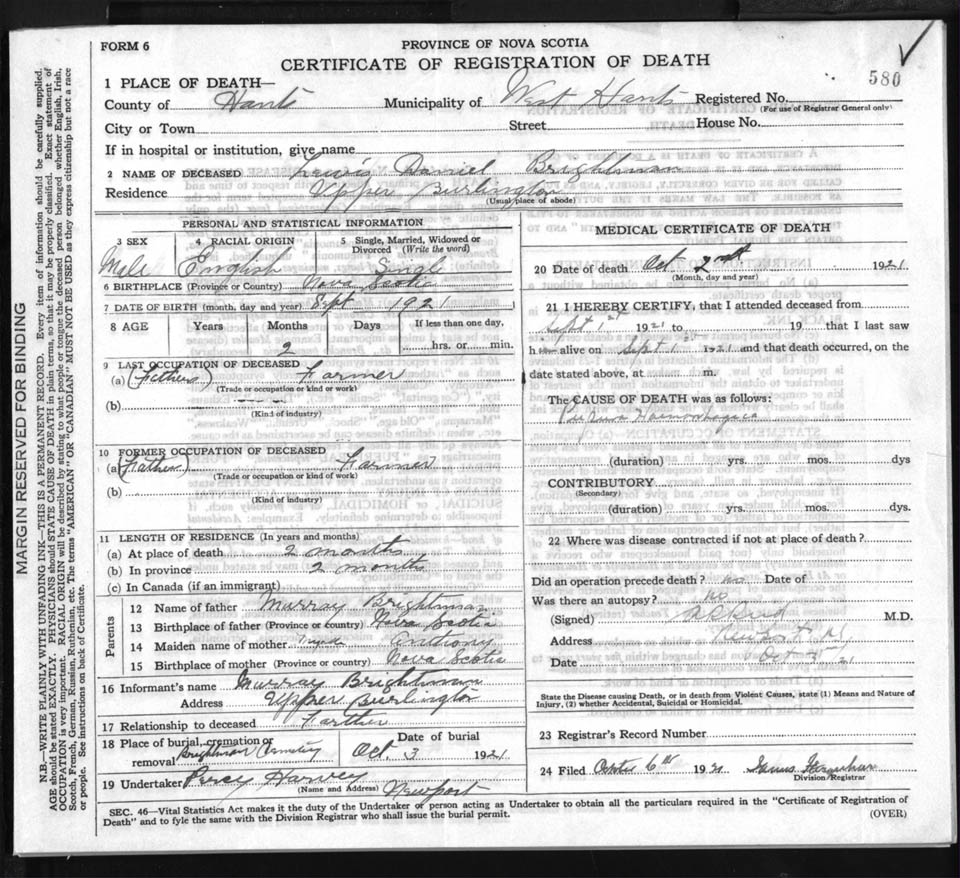 FORM 6
PROVINCE OF NOVA SCOTIA
CERTIFICATE OF REGISTRATION OF DEATH
580
1 PLACE OF DEATH—
County of Hants Municipality of West Hants Registered No.
(For use of Registrar General only)
City or Town Street House No.
If in hospital or institution, give name
2 NAME OF DECEASED Lewis Daniel Brightman
Residence Upper Burlington
(Usual place of abode)
PERSONAL AND STATISTICAL INFORMATION
3 SEX 4 RACIAL ORIGIN 5 Single, Married, Widowed or Divorced (Write the word)
Male English Single
6 BIRTHPLACE (Province or Country) Nova Scotia
7 DATE OF BIRTH (month, day and year) Sept 1921
8 AGE Years Months Days If less than one day,
2 hrs. or min.
9 LAST OCCUPATION OF DECEASED
(a) (Father) Farmer
(Trade or occupation or kind of work)
(b)
(Kind of industry)
10 FORMER OCCUPATION OF DECEASED
(a) (Father) Farmer
(Trade or occupation or kind of work)
(b)
(Kind of industry)
11 LENGTH OF RESIDENCE (In years and months)
(a) At place of death 2 months
(b) In province 2 months
(c) In Canada (if an immigrant)
Parents
12 Name of father Murray Brightman
13 Birthplace of father (Province or country) Nova Scotia
14 Maiden name of mother Anthony
15 Birthplace of mother (Province or country) Nova Scotia
16 Informant's name Murray Brightman
Address Upper Burlington
17 Relationship to deceased Farther
18 Place of burial, cremation or removal Brightman Cemetery Date of burial Oct. 3 1921
19 Undertaker Percy Harvey Newport
(Name and Address)
MEDICAL CERTIFICATE OF DEATH
20 Date of death Oct 2nd 1921
(Month, day and year)
21 I HEREBY CERTIFY, that I attended deceased from
Sept 1st 1921 to 19 that I last saw
h alive on Sept 1st 1921 and that death occurred, on the
date stated above, at m.
The CAUSE OF DEATH was as follows:
(duration) yrs. mos. dys
CONTRIBUTORY
(Secondary)
(duration) yrs. mos. dys.
22 Where was disease contracted if not at place of death?
Did an operation precede death? no Date of
Was there an autopsy? no
(Signed) M.D.
Address
Date Oct
State the Disease causing Death, or in death from Violent Causes, state (1) Means and Nature of
Injury, (2) whether Accidental, Suicidal or Homicidal.
23 Registrar's Record Number
24 Filed 6th 1921 James
Division Registrar
SEC. 46—Vital Statistics Act makes it the duty of the Undertaker or person acting as Undertaker to obtain all the particulars required in the "Certificate of Registration of
Death" and to fyle the same with the Division Registrar who shall issue the burial permit.
(OVER)
MARGIN RESERVED FOR BINDING
N.B.—WRITE PLAINLY WITH UNFADING INK—THIS IS A PERMANENT RECORD. Every item of information should be carefully supplied.
AGE should be stated EXACTLY. PHYSICIANS should STATE CAUSE OF DEATH in plain terms, so that it may be properly classified. Exact statement of
OCCUPATION is very important. RACIAL ORIGIN will be described by stating to what people or tongue the deceased person belonged, whether English, Irish,
Scotch, French, German, Russian, Ruthenian, etc. The terms "AMERICAN" OR "CANADIAN" MUST NOT BE USED as they express citizenship but not a race
or people. See instructions on back of Certificate.